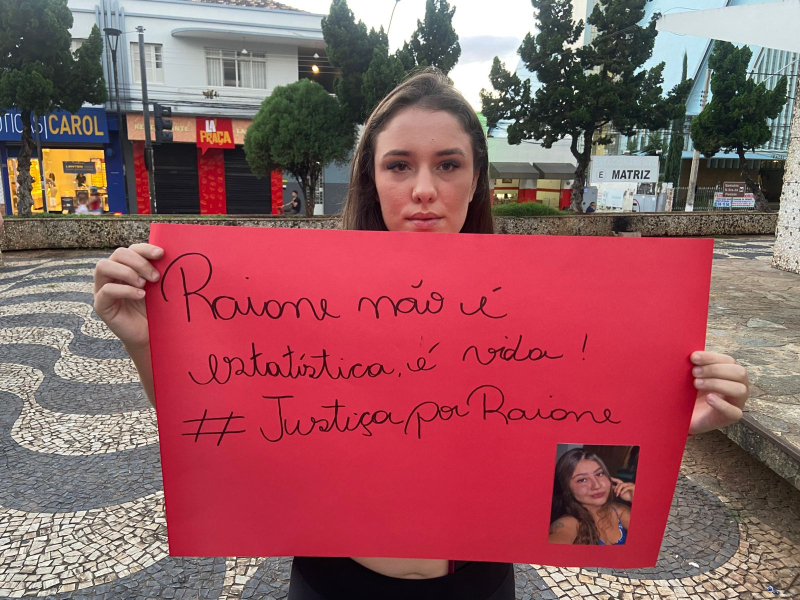 ÓTICAS CAROL
LA PRAÇA
E MATRIZ
Raione não é
estatística, é vida!
# Justiça por Raione